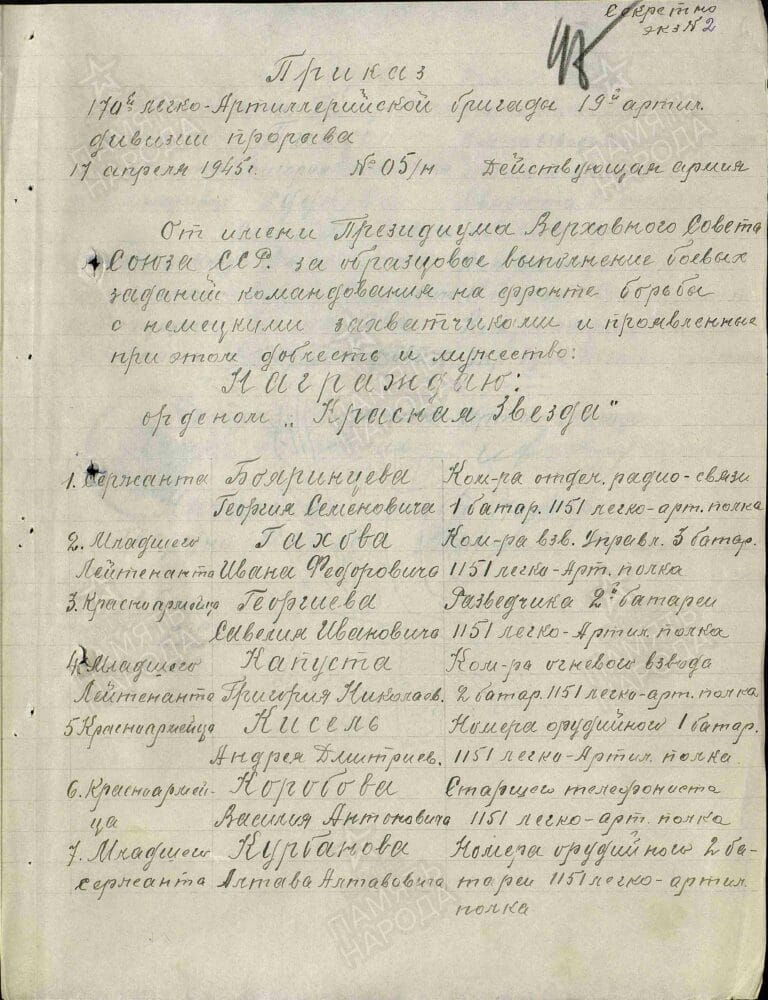 Секретно
экз N 2
47
Приказ
170й легко-Артиллерийской бригады 19й артил.
дивизии прорыва
17 апреля 1945г. № 05/н Действующая армия
От имени Президиума Верховного Совета
Союза ССР. за образцовое выполнение боевых
заданий командования на фронте борьбы
с немецкими захватчиками и проявленные
при этом доблесть и мужество:
Награждаю:
орденом „Красная Звезда"
1. Сержанта Бояринцева Ком-ра отдел. радио-связи
Георгия Семеновича 1 батар. 1151 легко-арт. полка
2. Младшего Гахова Ком-ра взв. Управл. 3 батар.
Лейтенанта Ивана Федоровича 1151 легко-Арт. полка
3. Красноармейца Георгиева Разведчика 2й батареи
Савелия Ивановича 1151 легко-Артил. полка
4. Младшего Капуста Ком-ра огневого взвода
Лейтенанта Григория Николаев. 2 батар. 1151 легко-арт. полка
5 Красноармейца Кисель Номера орудийного 1 батар.
Андрея Дмитриев. 1151 легко-Артил. полка.
6. Красноармей- Коробова Старшего телефониста
ца Василия Антоновича 1151 легко-арт. полка
7. Младшего Курбанова Номера орудийного 2 ба-
сержанта Алтава Алтавовича тареи 1151 легко-артил.
полка
ПАМЯТЬ
НАРОДА